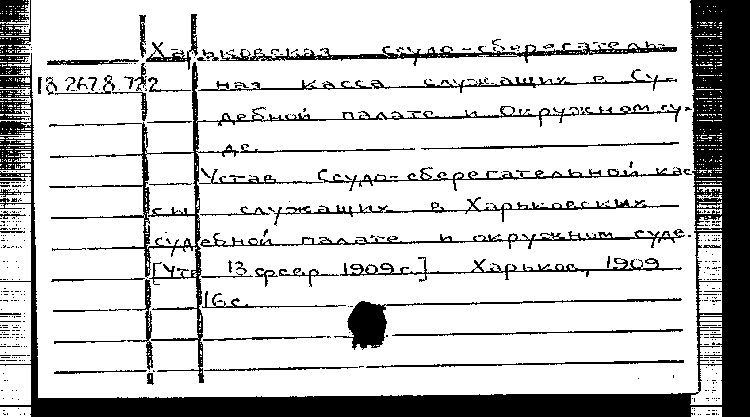 Харьковская ссудо-сберегатель-
18.267.8.722 ная касса служащих в Су-
дебной палате и Окружном су-
де.
Устав Ссудо-сберегательной кас
сы служащих в Харьковских
судебной палате и окружном суде.
[Утв 13 февр 1909 г.] Харьков, 1909
16 с.